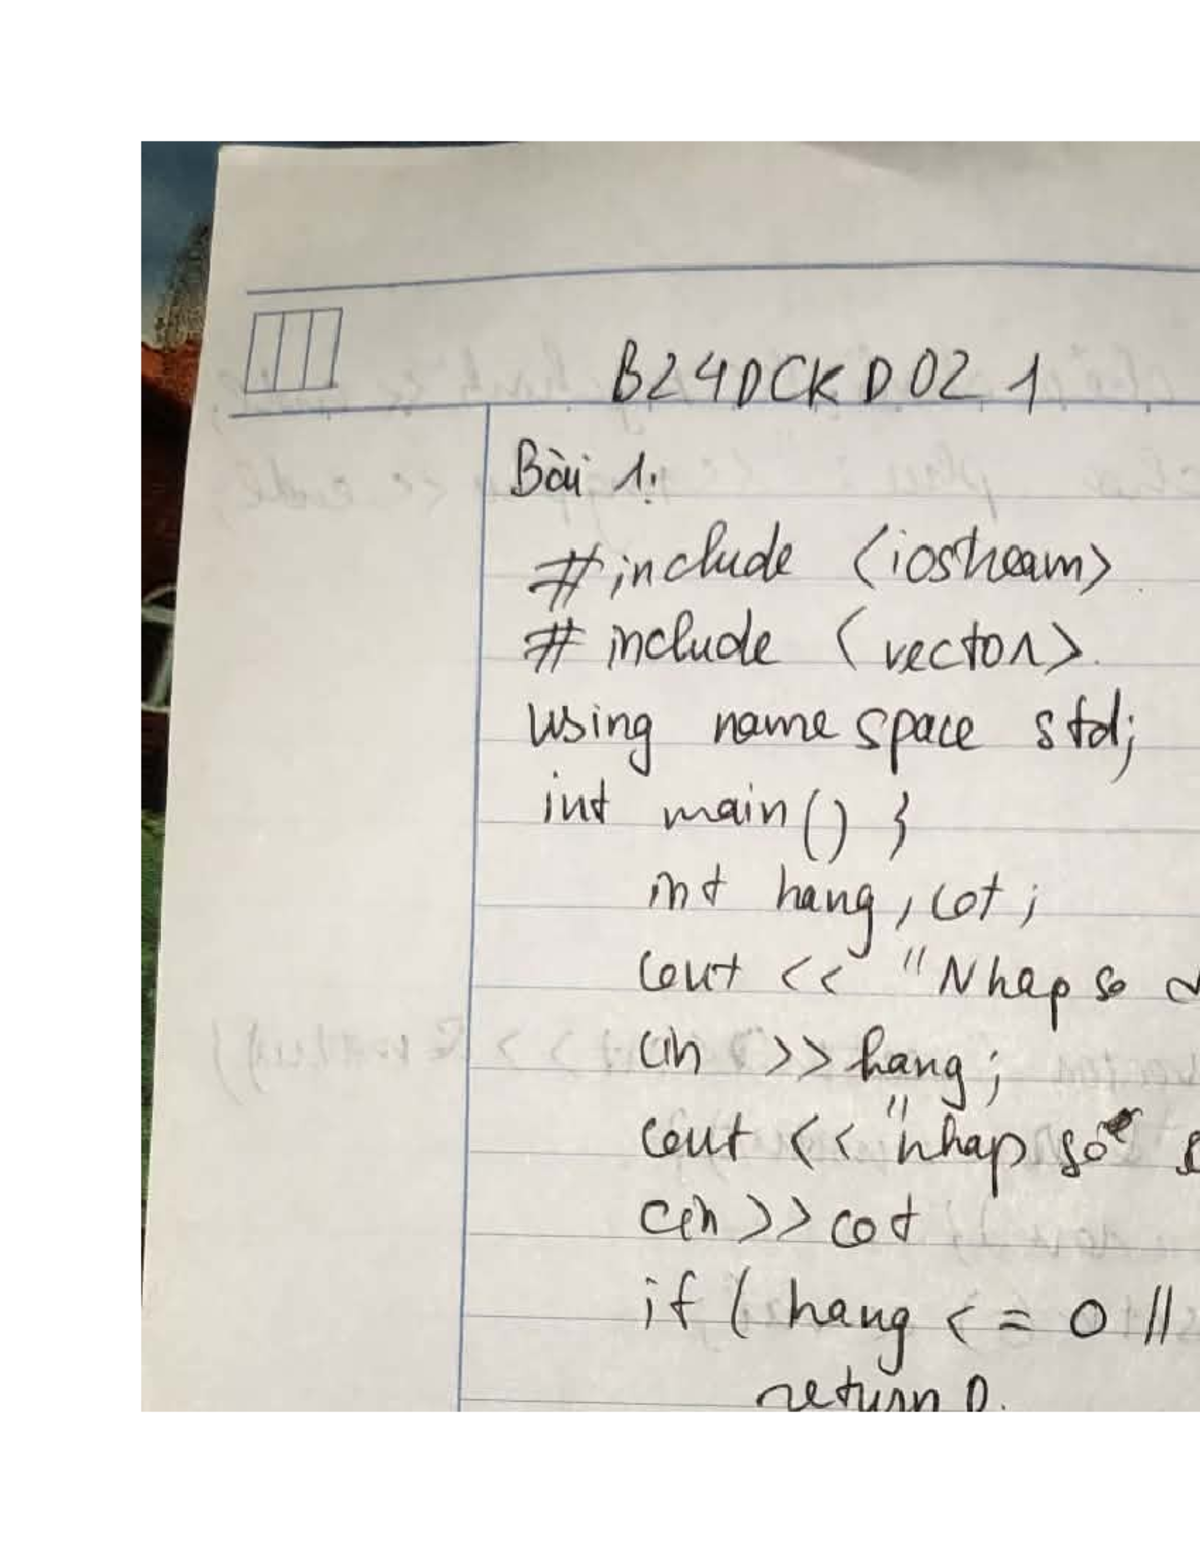 B24DCKD021
Bài 1:
#include <iostream>
# include <vector>
using namespace std;
int main() {
int hang, cot;
cout << "Nhap so
cin >> hang;
cout << "nhap số
cin >> cot
if ( hang <= 0 ||
return 0;